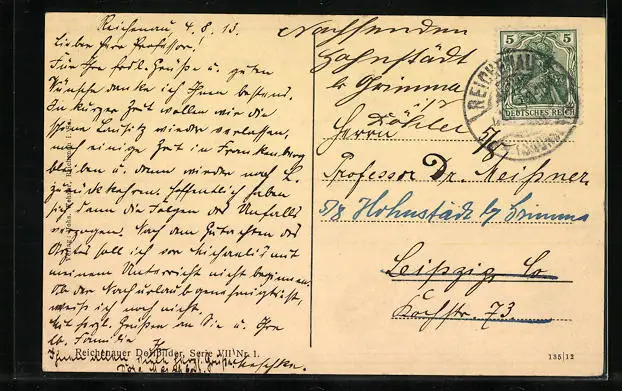 Reichenau, 4.8.13.
Lieber Herr Professor!
Für Ihre frdl. Grüße u. guten
Wünsche danke ich Ihnen bestens.
In kurzer Zeit wollen wir die
schöne Lausitz wieder verlassen,
noch einige Zeit in Frankenberg
bleiben u. dann wieder nach L.
zurückkehren. Hoffentlich haben
sich dann die Folgen des Unfalls
verzogen. Nach dem Gutachten des
Arztes soll ich vor Michaelis mit
meinem Unterricht nicht beginnen.
Ob der Nachurlaub genehmigt ist,
weiß ich noch nicht.
Mit herzl. Grüßen an Sie u. Ihre
lb. Familie
Reichenauer Dorfbilder, Serie VII Nr. 1.
Nachsenden
Hohnstädt
b/ Grimma
Köhler
5/8
Herrn
Professor Dr. Meißner,
z/z Hohnstädt b/ Grimma
Leipzig, Co
Kochstr. 73
5 5
DEUTSCHES REICH
REICHENAU
135|12